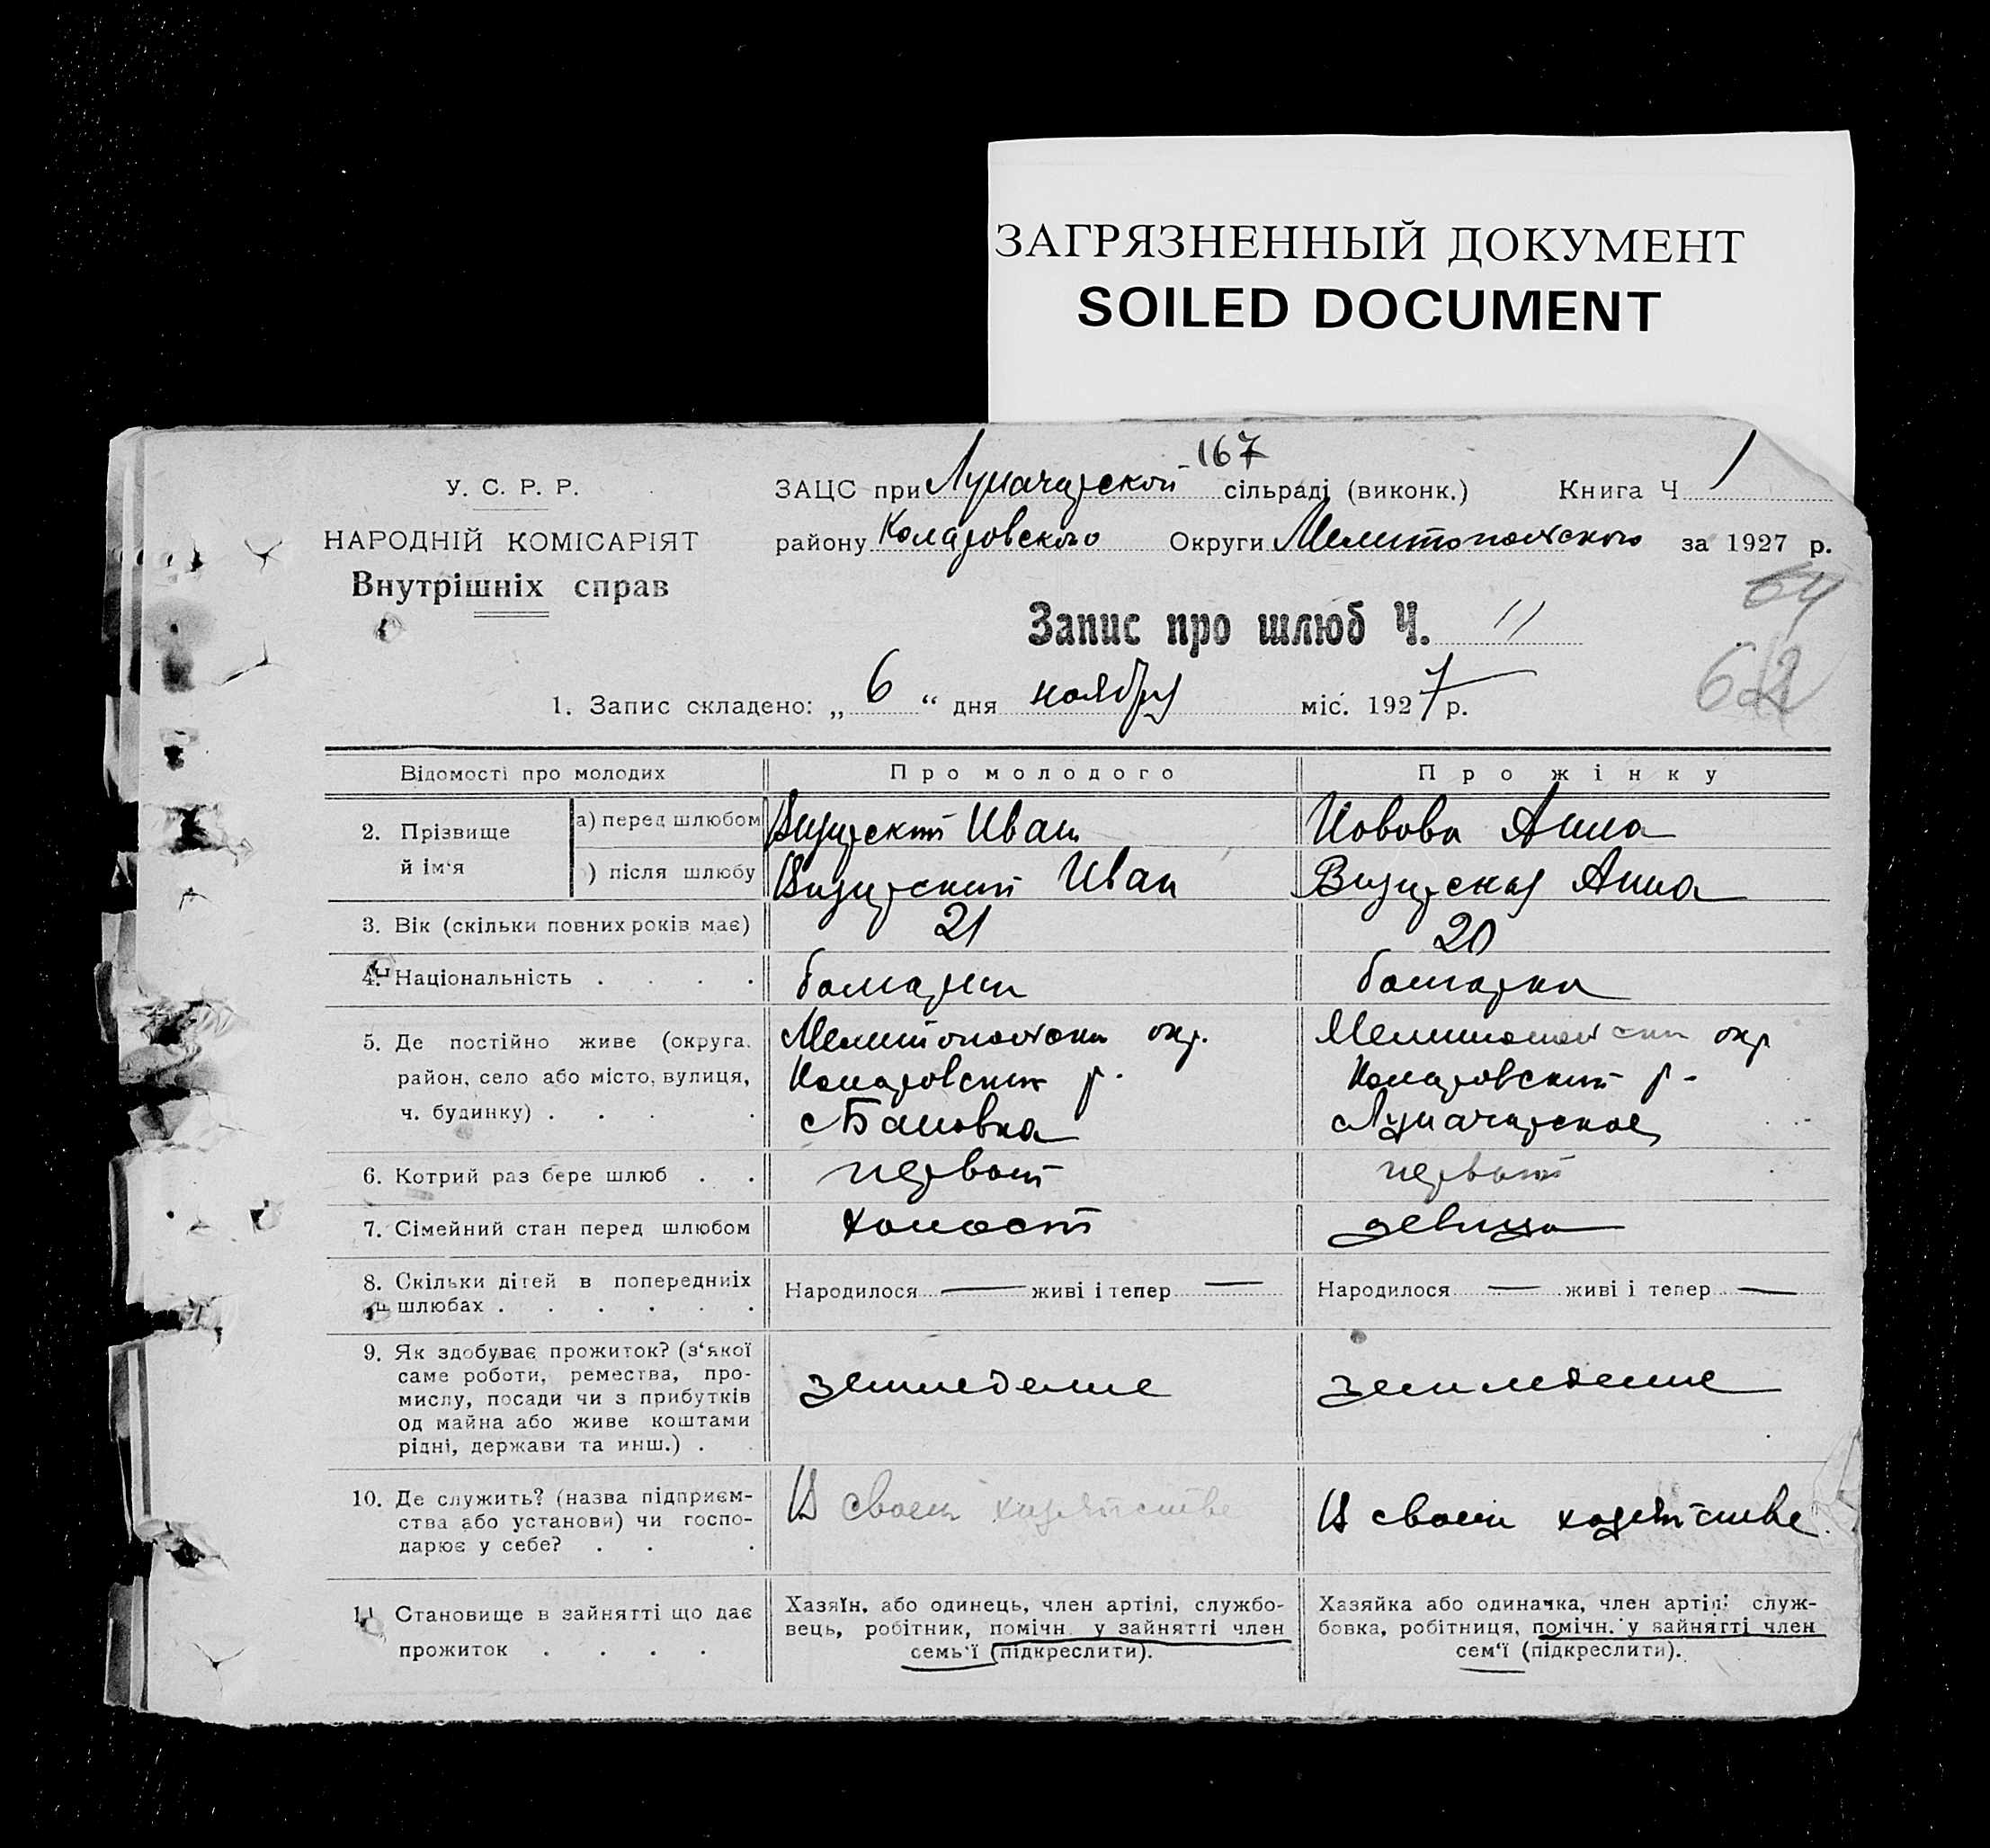 ЗАГРЯЗНЕННЫЙ ДОКУМЕНТ
SOILED DOCUMENT
167
У. С. Р. Р.
НАРОДНІЙ КОМІСАРІЯТ
Внутрішніх справ
ЗАЦС при Луначарской сільраді (виконк.) Книга Ч 1
району Коларовского Округи Мелитопольского за 1927 р.
64
Запис про шлюб Ч. 11
62
1. Запис складено: „ 6 “ дня ноября міс. 1927 р.
Відомості про молодих Про молодого Про жінку
2. Прізвище й ім‘я
а) перед шлюбом Визирский Иван Йовова Анна
) після шлюбу Визирский Иван Визирская Анна
3. Вік (скільки повних років має) 21 20
4. Національність . . . . болгарин болгарка
5. Де постійно живе (округа, Мелитопольский окр. Мелитопольский окр
район, село або місто, вулиця, Коларовский р. Коларовский р-
ч. будинку) . . . . с Бановка с Луначарское
6. Котрий раз бере шлюб . . первый первый
7. Сімейний стан перед шлюбом холост девица
8. Скільки дітей в попередніх Народилося — живі і тепер — Народилося — живі і тепер —
шлюбах . . . . . .
9. Як здобуває прожиток? (з‘якої
саме роботи, ремества, про-
мислу, посади чи з прибутків земледелие земледелие
од майна або живе коштами
рідні, держави та инш.) .
10. Де служить? (назва підприєм- В своем хозяйстве В своем хозяйстве
ства або установи) чи госпо-
дарює у себе? . . .
11 Становище в зайнятті що дає
прожиток . . . .
Хазяїн, або одинець, член артілі, службо-
вець, робітник, помічн. у зайнятті член
семь‘ї (підкреслити).
Хазяйка або одиначка, член артілі служ-
бовка, робітниця, помічн. у зайнятті член
сем‘ї (підкреслити).